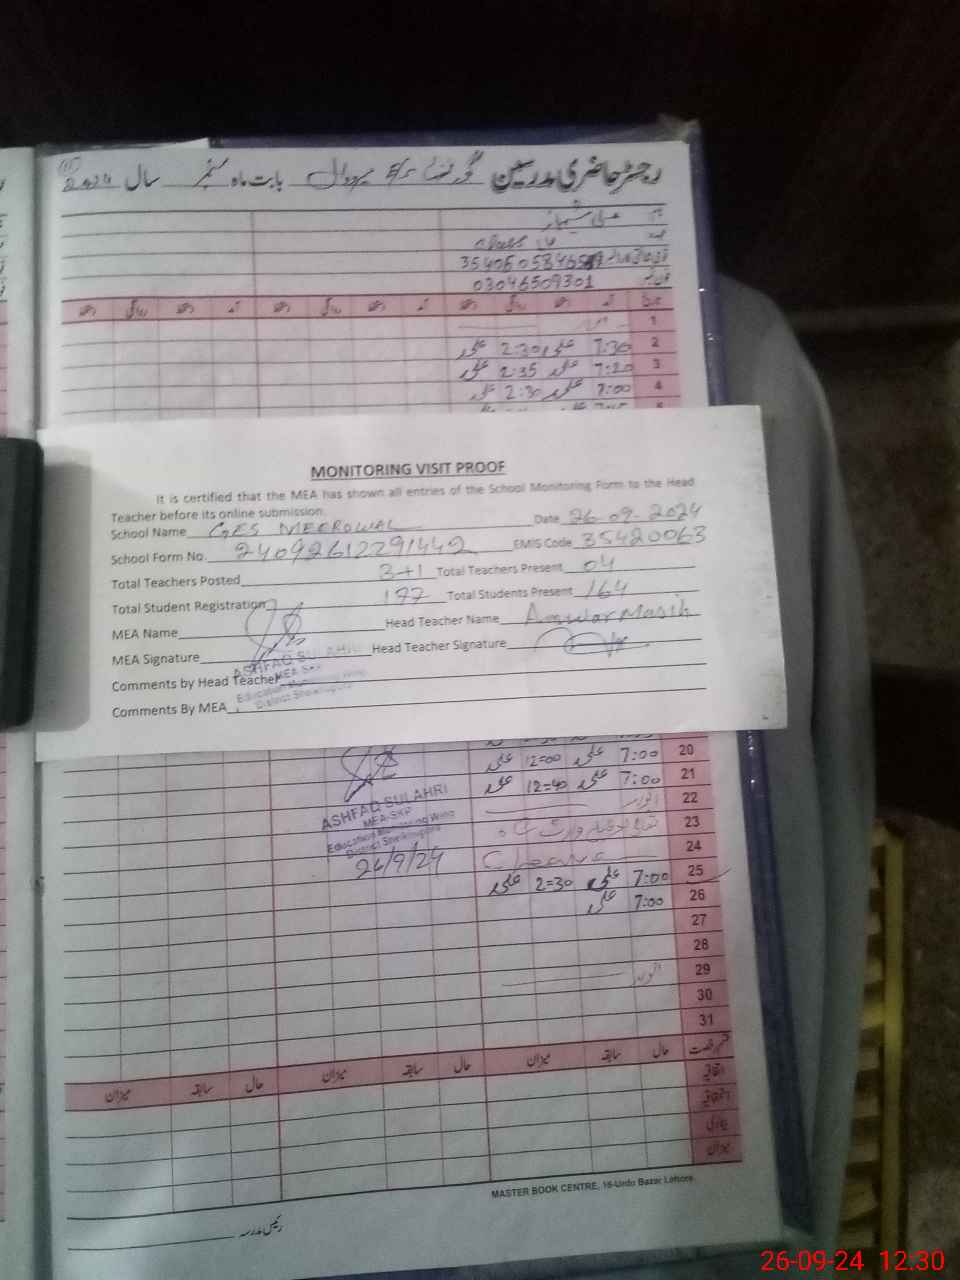 رجسٹر حاضری مدرسین گورنمنٹ میرووال بابت ماہ ستمبر سال 2024
03046509301
1
7:30 علی 2:30 علی 2
7:20 علی 2:35 علی 3
7:00 علی 2:30 علی 4
MONITORING VISIT PROOF
It is certified that the MEA has shown all entries of the School Monitoring Form to the Head
Teacher before its online submission.
School Name GES MEEROWAL Date 26-09-2024
School Form No. 24092612291442 EMIS Code 35420063
Total Teachers Posted 3+1 Total Teachers Present 04
Total Student Registration 197 Total Students Present 164
MEA Name Head Teacher Name Anwar Masih
MEA Signature Head Teacher Signature
ASHFAQ SULAHRI
MEA-SKP
Education Monitoring Wing
District Sheikhupura
Comments by Head Teacher
Comments By MEA
7:00 علی 12=00 علی 20
7:00 علی 12=40 علی 21
اتوار 22
23
24
7:00 علی 2=30 علی 25
7:00 علی 26
27
28
اتوار 29
30
31
ASHFAQ SULAHRI
MEA-SKP
Education Monitoring Wing
District Sheikhupura
26/9/24
حال سابقہ میزان حال سابقہ میزان حال سابقہ میزان
اتفاقیہ
میزان
MASTER BOOK CENTRE, 16-Urdu Bazar Lahore.
رئیس مدرسہ
26-09-24 12:30